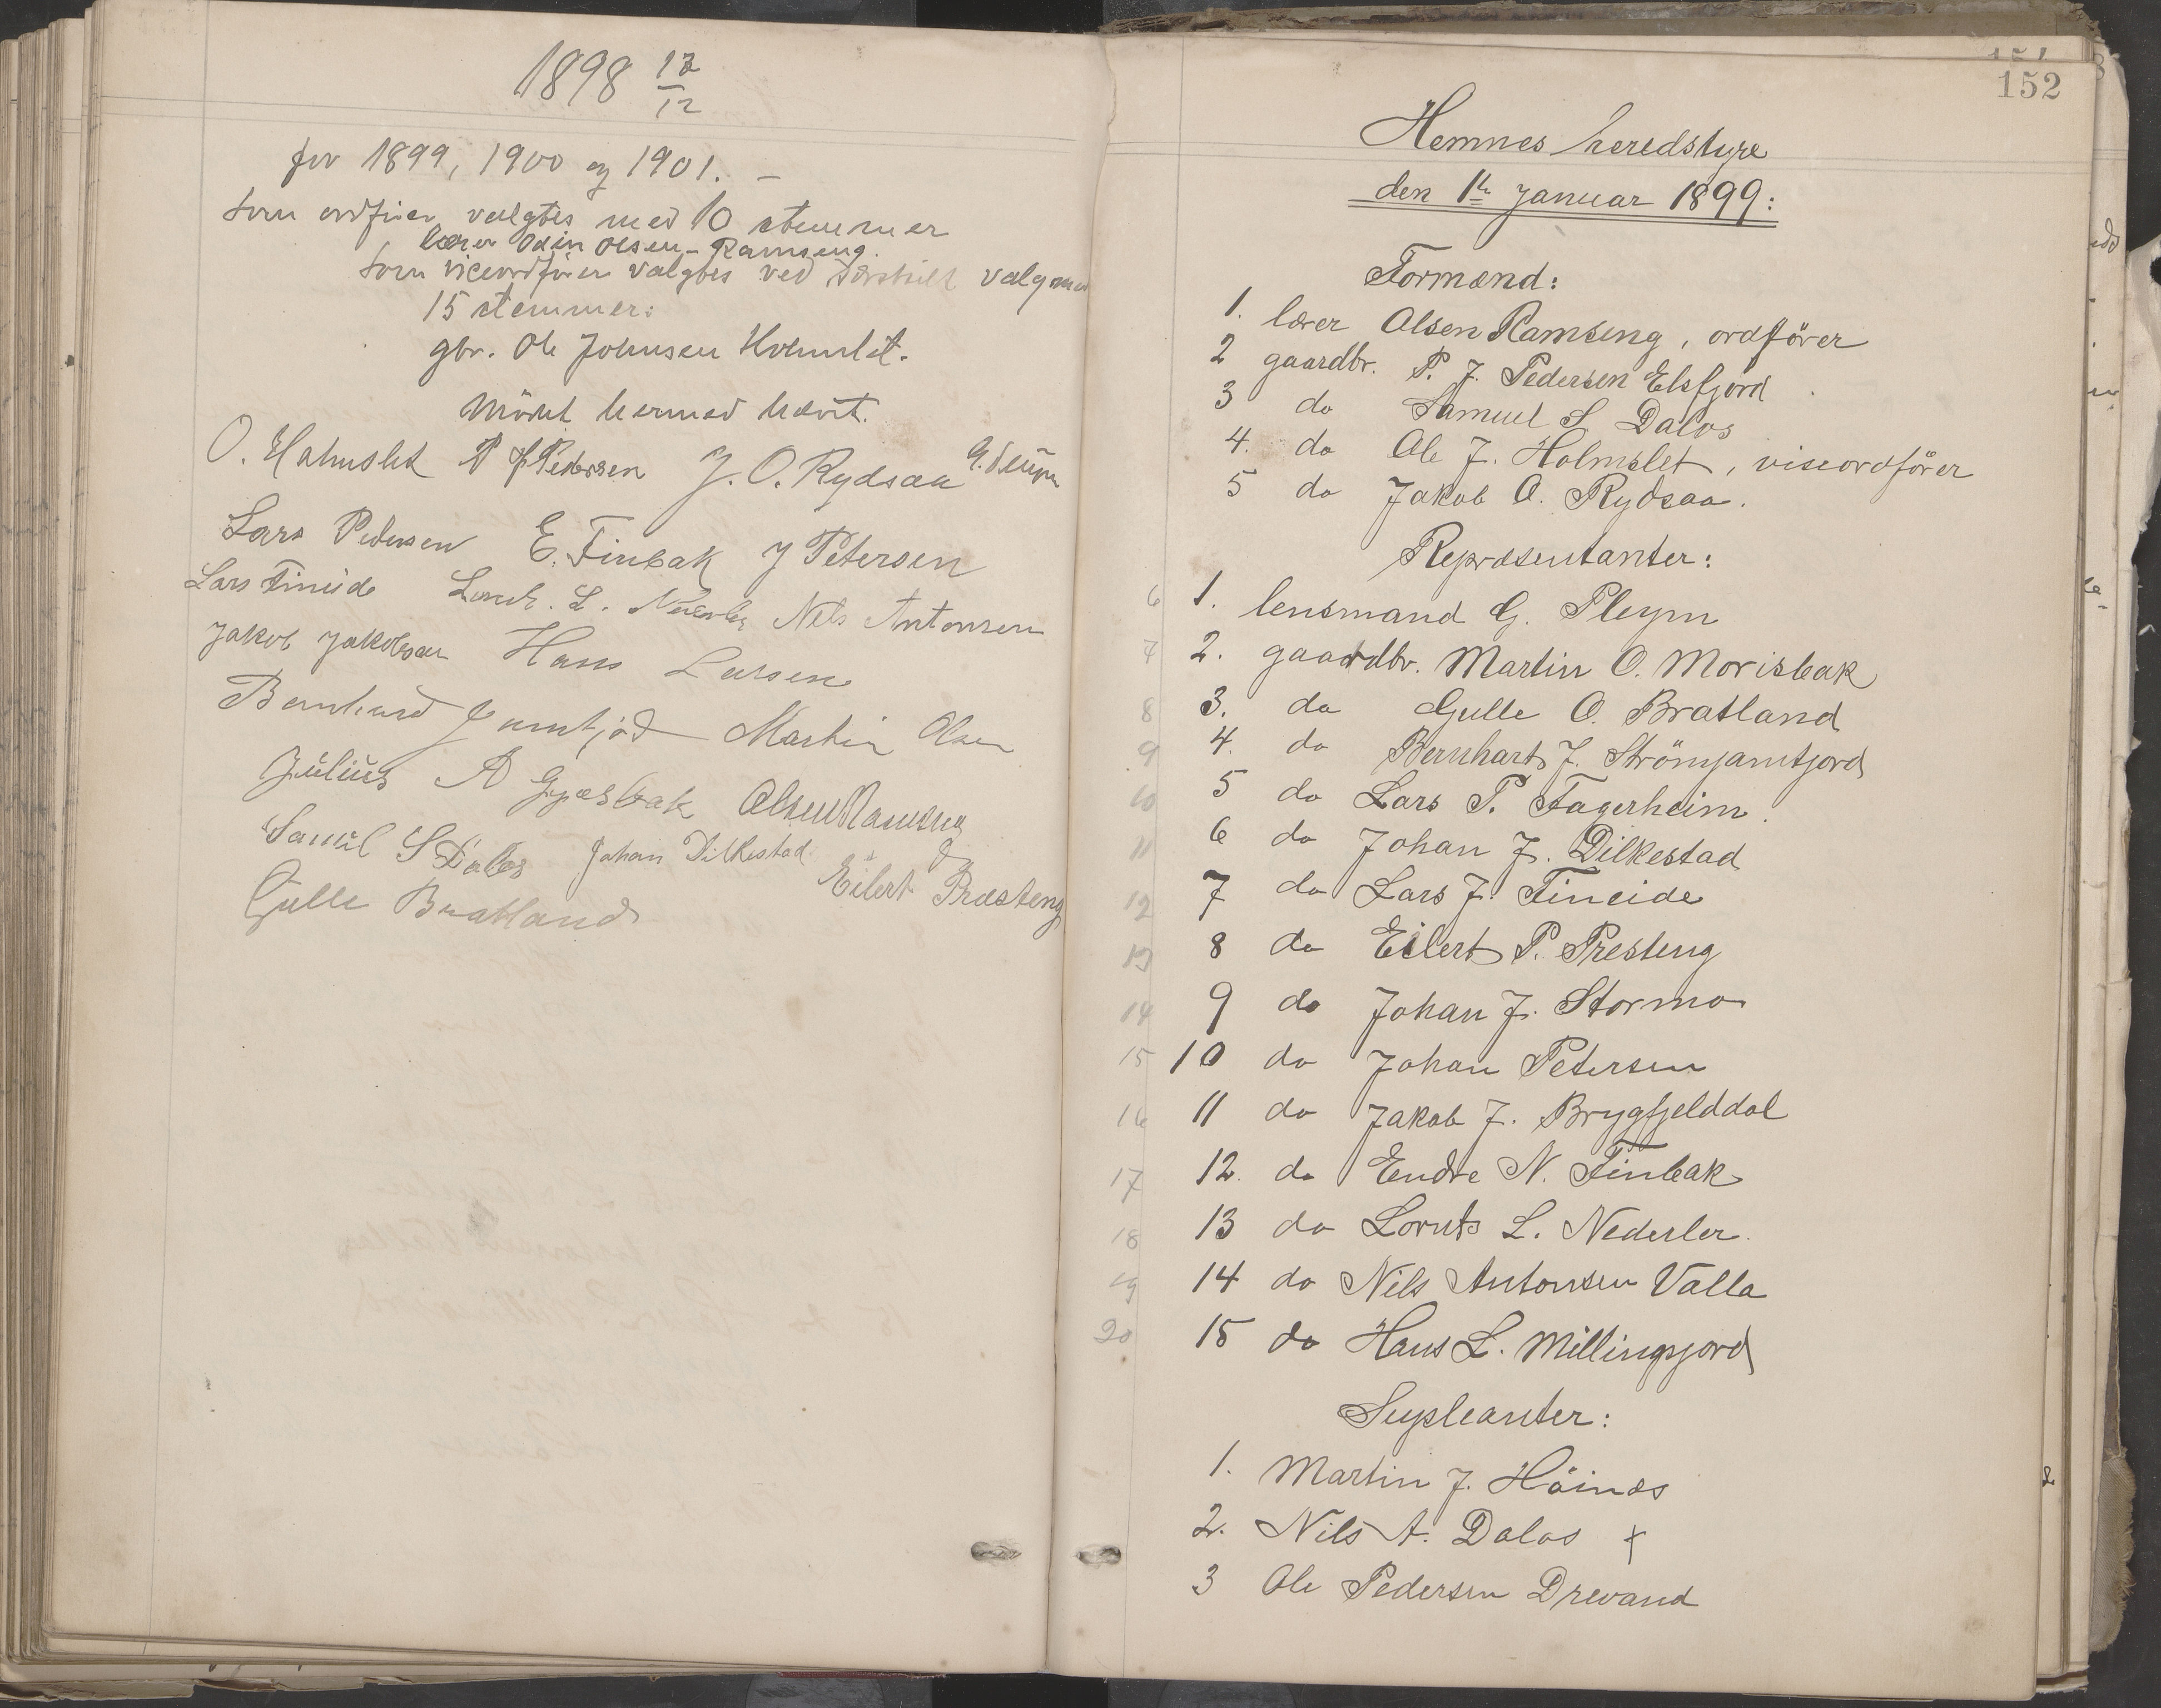 1898 13/12
for 1899, 1900 og 1901. –
Som ordfører valgtes med 10 stemmer
lærer Odin Olsen-Ramseng.
Som viceordfører valgtes ved særskilt valg med
15 stemmer:
gbr. Ole Johnsen Holmslet.
Mödet hermed hævet.
O. Holmslet P J Pedersen J. O. Rydsaa G. Pleym
Lars Pedersen E. Finbak J Petersen
Lars Fineide L. Nederler Nils Antonsen
Jakob Jakobsen Hans Larsen
Bernhard Jamtjord Martin Olsen
Julius A Gjæsbak Olsen Ramseng
Samuel S Dalos Johan Dilkestad
Eilert Præsteng
Gulle Bratland
152
Hemnes heredstyre
den 1ste Januar 1899:
Formænd:
1. lærer Olsen Ramseng, ordförer
2 gaardbr. P. J. Pedersen Elsfjord
3 do Samuel S Dalos
4. do Ole J. Holmslet, viseordförer
5 do Jakob O. Rydsaa.
Repræsentanter:
6 1. lensmand G. Pleym
7 2. gaardbr. Martin O. Morisbak
8 3. do Gulle O. Bratland
9 4. do Bernharts J. Strömjamtjord
10 5 do Lars P. Fagerheim.
11 6 do Johan J. Dilkestad
12 7 do Lars J. Fineide
13 8 do Eilert P. Presteng
14 9 do Johan J. Stormo
15 10 do Johan Petersen
16 11 do Jakob J. Brygfjelddal
17 12. do Endre N. Finbak
18 13 do Loruts L. Nederler.
19 14 do Nils Antonsen Valla
20 15 do Hans L. Millingsjord
Supleanter:
1. Martin J. Höinæs
2. Nils A. Dalos x
3 Ole Pedersen Drevand